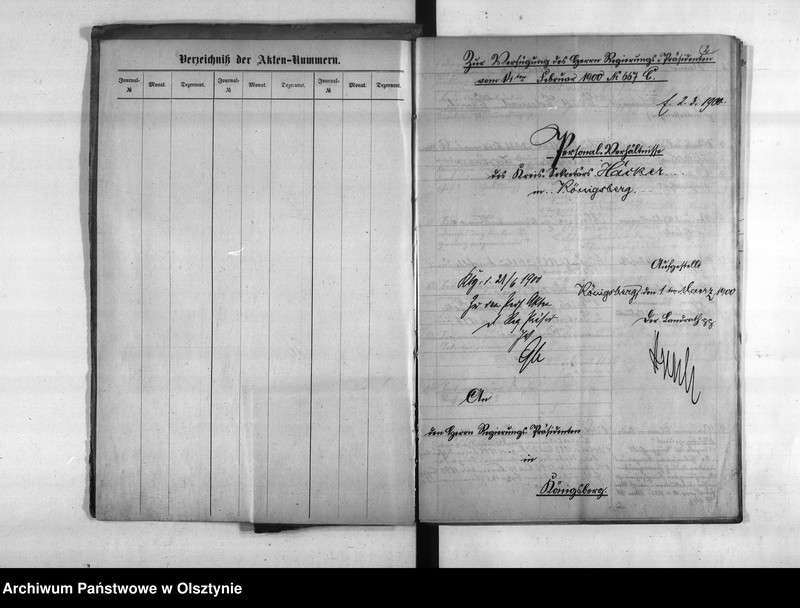 Verzeichniß der Akten-Nummern.
Journal-№ Monat. Dezernent. Journal-№ Monat. Dezernent. Journal-№ Monat. Dezernent.
2
Zur Verfügung des Herrn Regierungs-Präsidenten
vom Februar 1900 № 667 C.
2. 3. 1900.
Personal-Verhältnisse
des Kreis-Sekretärs Häcker
in Königsberg.
Aufgestellt
Königsberg, den 1ten Maerz 1900
Der Landrath
Kbg. d. /6 1900
Zu den Pers. Akten
An
den Herrn Regierungs-Präsidenten
in
Königsberg.
Archiwum Państwowe w Olsztynie